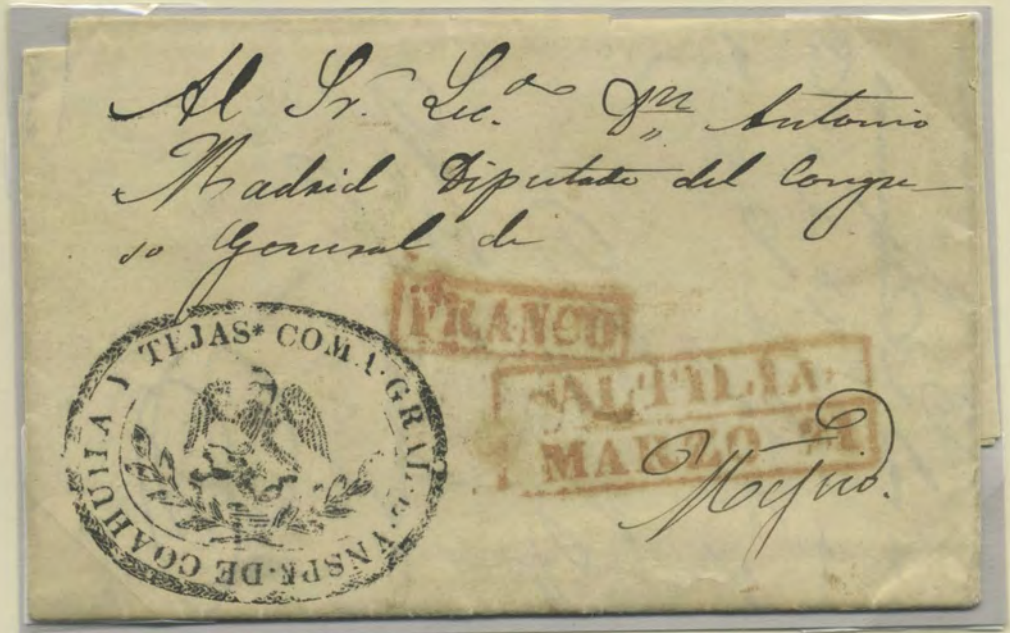 Al Sr. Lic.do Dn Antonio
Madrid Diputado del Congre-
so General de
FRANCO
SALTILLO
MARZO 21
Mejico.
COMA. GRAL. E YNSPR. DE COAHUILA Y TEJAS*